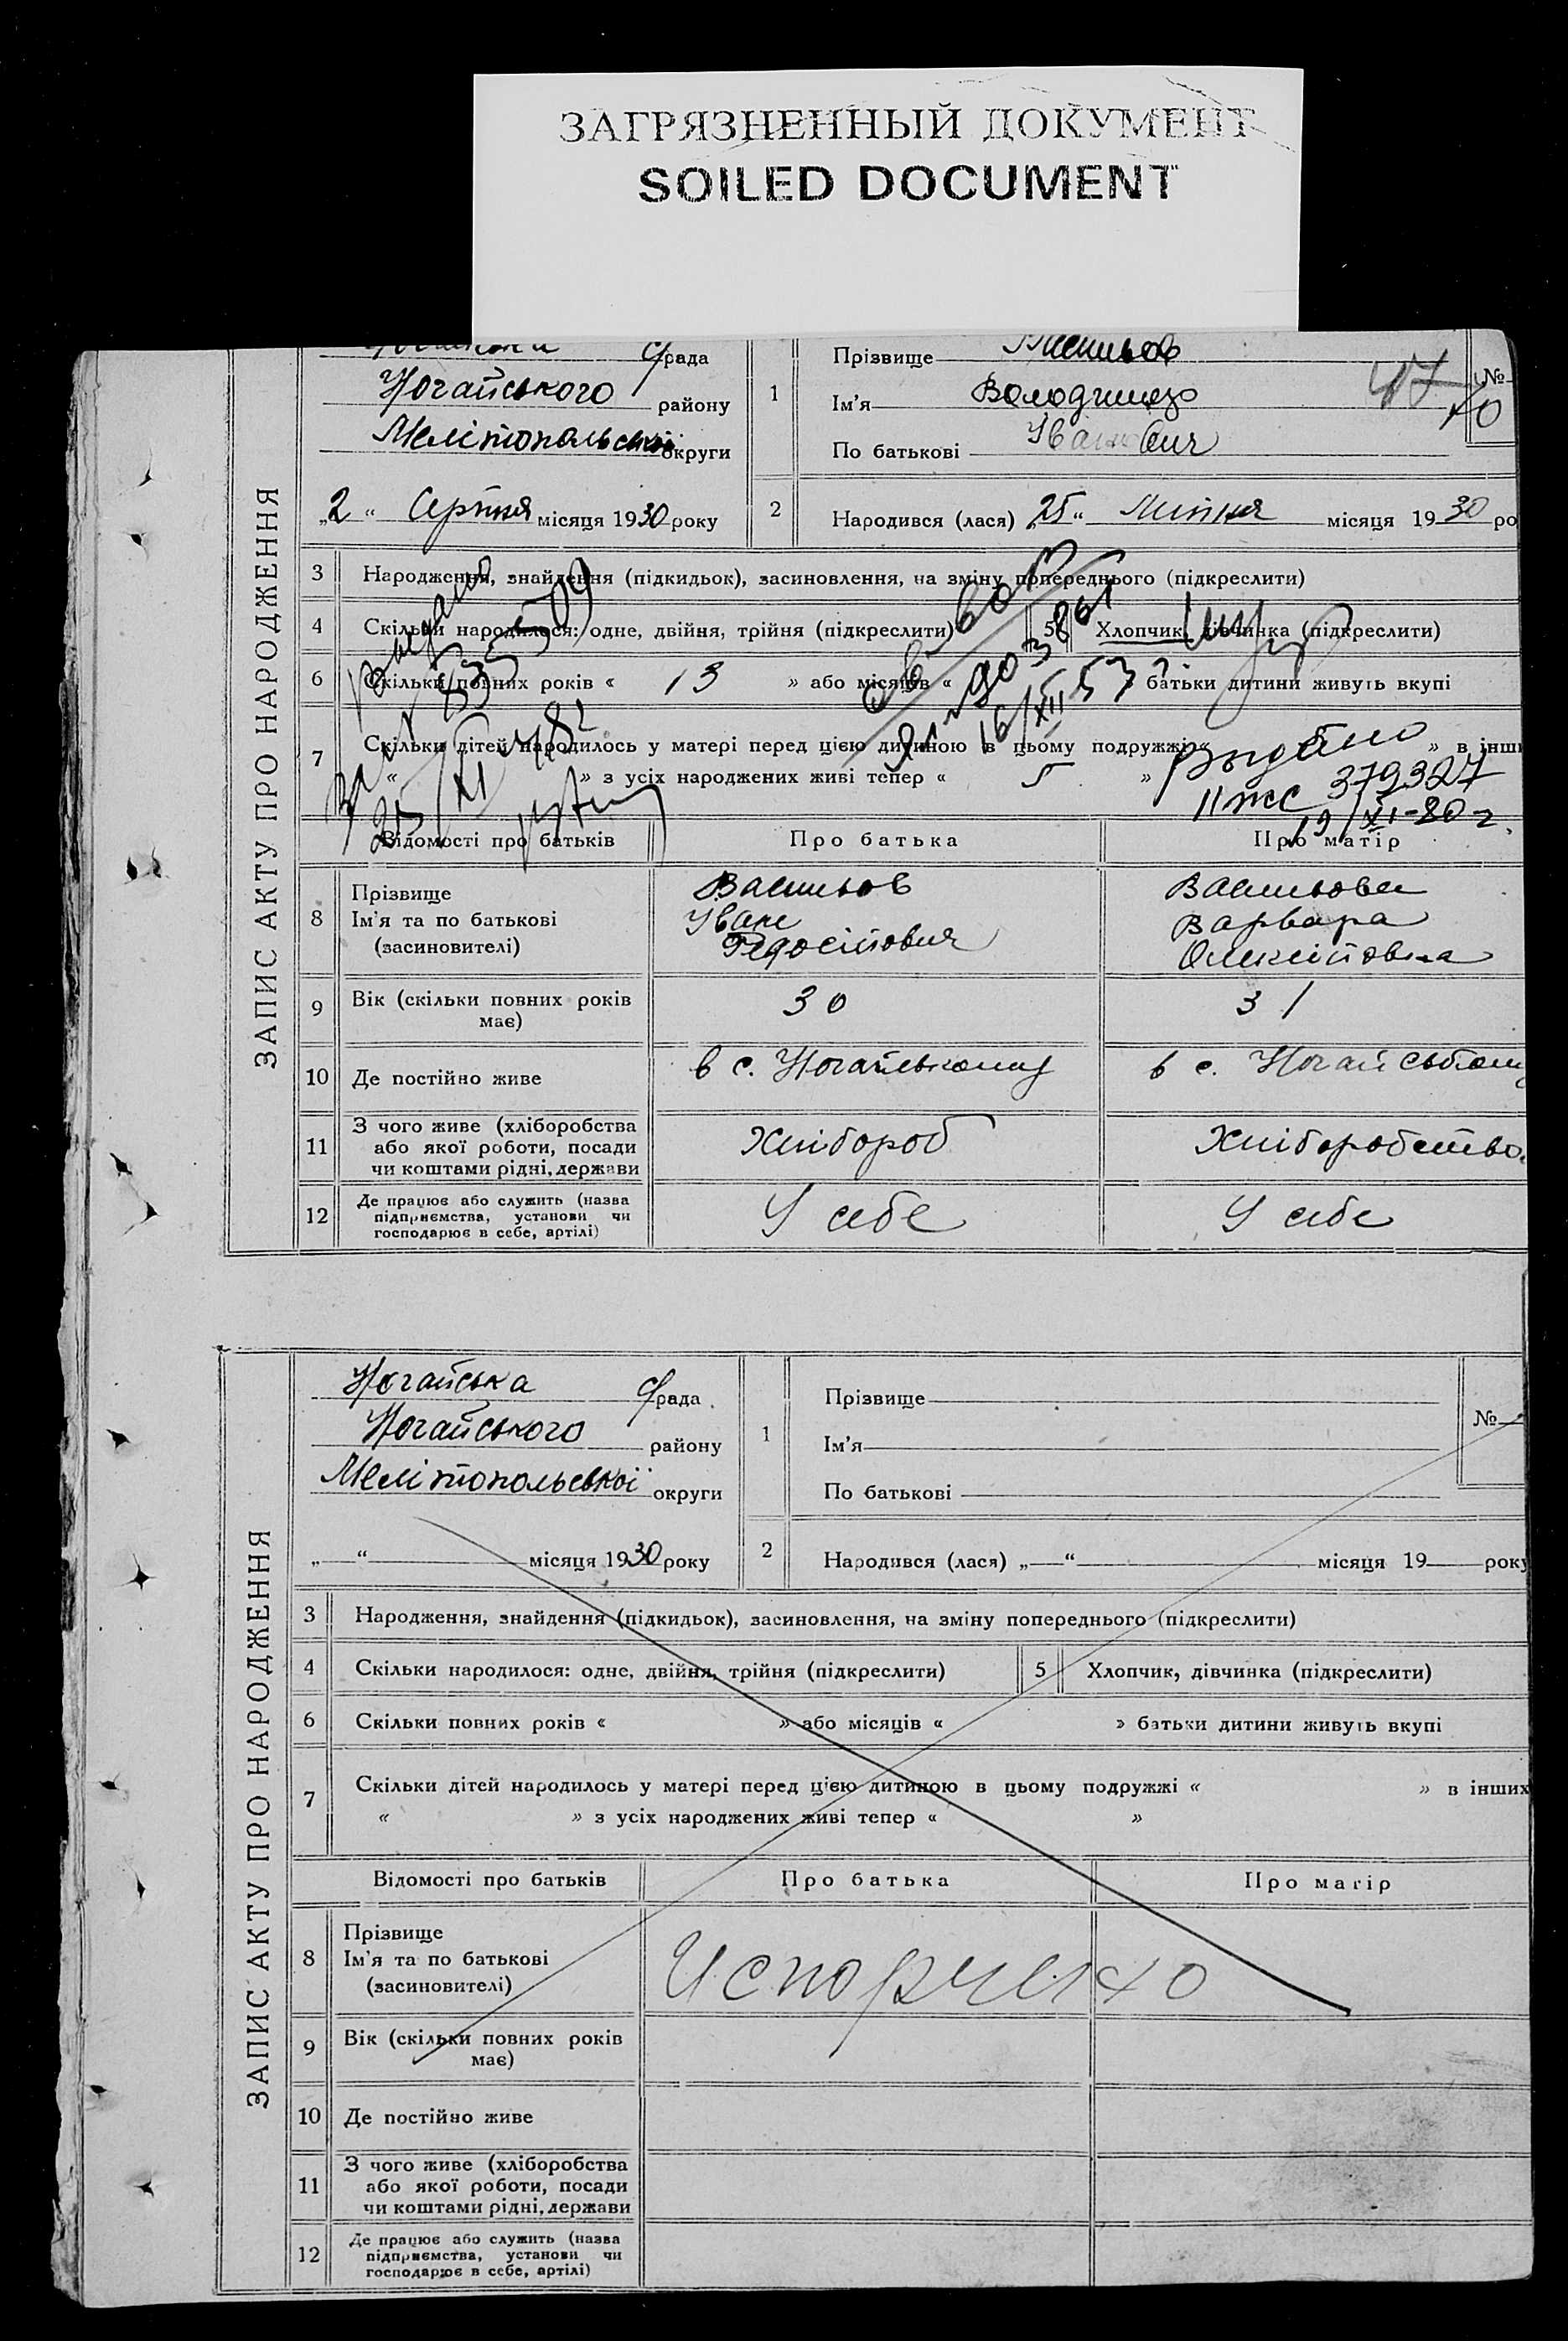 ЗАГРЯЗНЕННЫЙ ДОКУМЕНТ
SOILED DOCUMENT
ЗАПИС АКТУ ПРО НАРОДЖЕННЯ
с/рада
Ногайського району
Мелітопольської округи
„2“ Серпня місяця 1930 року
1
Прізвище Васильов
Ім'я Володимир
По батькові Іванович
№
47
70
2
Народився (лася) „25“ Липня місяця 1930 ро
3 Народження, знайдення (підкидьок), засиновлення, на зміну попереднього (підкреслити)
4 Скільки народилося: одне, двійня, трійня (підкреслити)
5 Хлопчик, дівчинка (підкреслити)
6 Скільки повних років « 13 » або місяців « батьки дитини живуть вкупі
7 Скільки дітей народилось у матері перед цією дитиною в цьому подружжі « » в інши
« » з усіх народжених живі тепер « 5 »
16/XII 53 г.
Выдано
379327
19/XI-80 г.
Відомості про батьків
Про батька
Про матір
8
Прізвище
Ім'я та по батькові
(засиновителі)
Васильов
Іван
Федосійович
Васильова
Варвара
Олексіївна
9 Вік (скільки повних років має)
30
31
10 Де постійно живе
в с. Ногайському
в с. Ногайському
11 З чого живе (хліборобства
або якої роботи, посади
чи коштами рідні, держави
Хлібороб
Хліборобство
12 Де працює або служить (назва
підприємства, установи чи
господарює в себе, артілі)
У себе
У себе
ЗАПИС АКТУ ПРО НАРОДЖЕННЯ
Ногайська с/рада
Ногайського району
Мелітопольської округи
„—“ місяця 1930 року
1
Прізвище
Ім'я
По батькові
№
2
Народився (лася) „—“ місяця 19 року
3 Народження, знайдення (підкидьок), засиновлення, на зміну попереднього (підкреслити)
4 Скільки народилося: одне, двійня, трійня (підкреслити)
5 Хлопчик, дівчинка (підкреслити)
6 Скільки повних років « » або місяців « » батьки дитини живуть вкупі
7 Скільки дітей народилось у матері перед цією дитиною в цьому подружжі « » в інших
« » з усіх народжених живі тепер « »
Відомості про батьків
Про батька
Про матір
8
Прізвище
Ім'я та по батькові
(засиновителі)
Испорчено
9 Вік (скільки повних років має)
10 Де постійно живе
11 З чого живе (хліборобства
або якої роботи, посади
чи коштами рідні, держави
12 Де працює або служить (назва
підприємства, установи чи
господарює в себе, артілі)